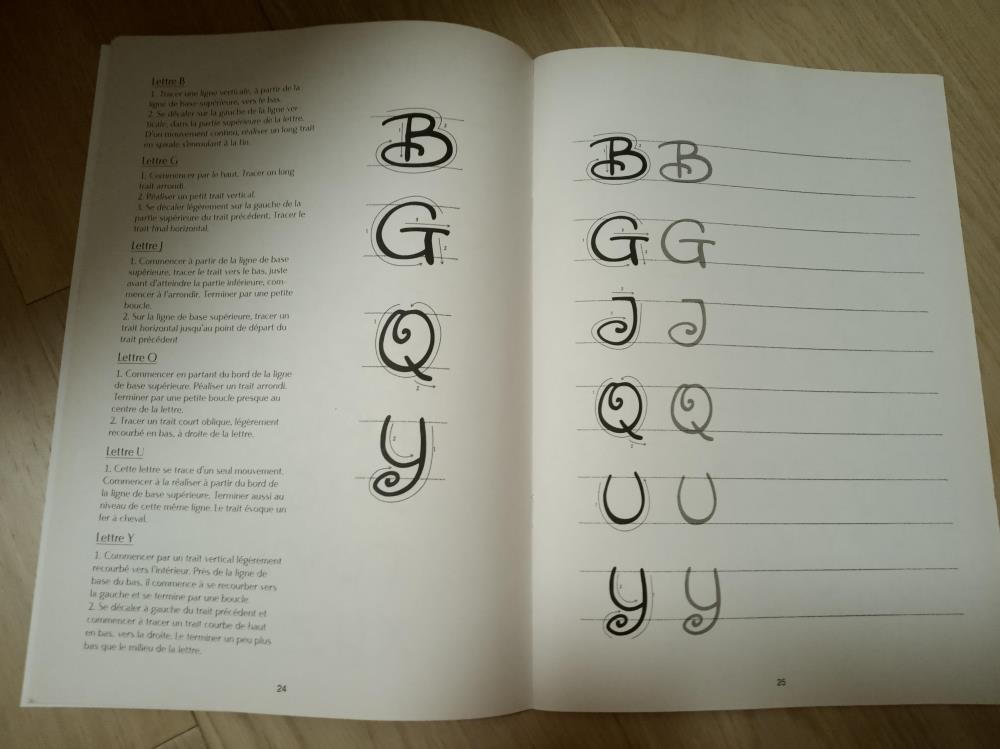 Lettre B
1. Tracer une ligne verticale, à partir de la
ligne de base supérieure, vers le bas.
2. Se décaler sur la gauche de la ligne ver-
ticale, dans la partie supérieure de la lettre.
D'un mouvement continu, réaliser un long trait
en spirale s'enroulant à la fin.
Lettre G
1. Commencer par le haut. Tracer un long
trait arrondi.
2. Réaliser un petit trait vertical.
3. Se décaler légèrement sur la gauche de la
partie supérieure du trait précédent. Tracer le
trait final horizontal.
Lettre J
1. Commencer à partir de la ligne de base
supérieure, tracer le trait vers le bas, juste
avant d'atteindre la partie inférieure, com-
mencer à l'arrondir. Terminer par une petite
boucle.
2. Sur la ligne de base supérieure, tracer un
trait horizontal jusqu'au point de départ du
trait précédent
Lettre Q
1. Commencer en partant du bord de la ligne
de base supérieure. Réaliser un trait arrondi.
Terminer par une petite boucle presque au
centre de la lettre.
2. Tracer un trait court oblique, légèrement
recourbé en bas, à droite de la lettre.
Lettre U
1. Cette lettre se trace d'un seul mouvement.
Commencer à la réaliser à partir du bord de
la ligne de base supérieure. Terminer aussi au
niveau de cette même ligne. Le trait évoque un
fer à cheval.
Lettre Y
1. Commencer par un trait vertical légèrement
recourbé vers l'intérieur. Près de la ligne de
base du bas, il commence à se recourber vers
la gauche et se termine par une boucle.
2. Se décaler à gauche du trait précédent et
commencer à tracer un trait courbe de haut
en bas, vers la droite. Le terminer un peu plus
bas que le milieu de la lettre.
24
B
G
Q
Y
B B
G G
J J
Q Q
U U
Y Y
25